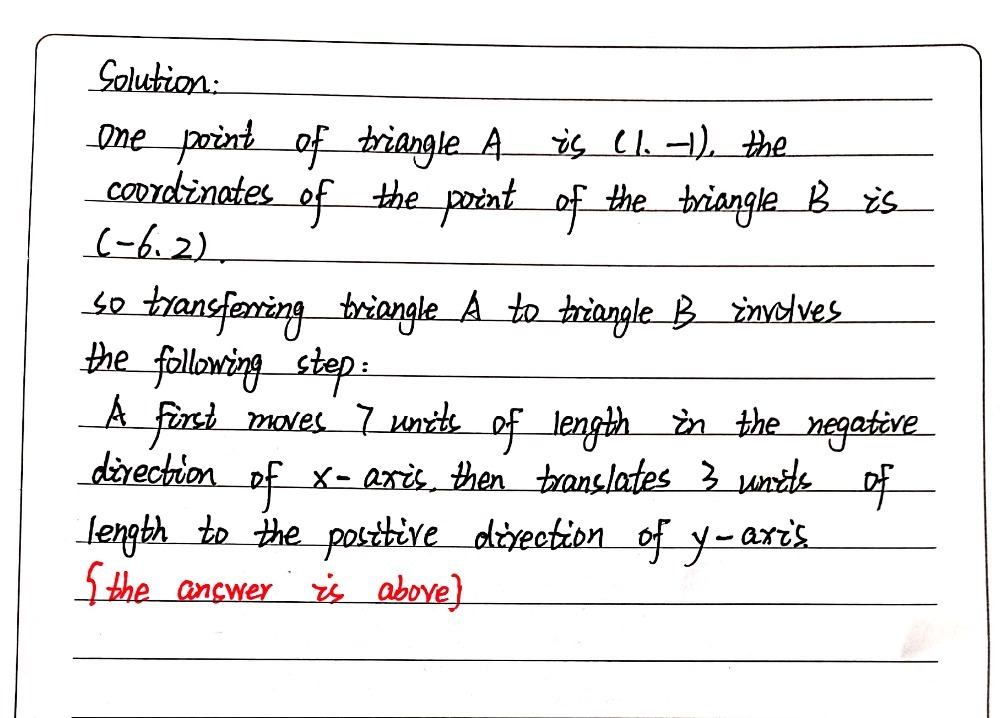 Solution:
one point of triangle A is (1. -1). the
coordinates of the point of the triangle B is
(-6. 2).
so transferring triangle A to triangle B involves
the following step:
A first moves 7 units of length in the negative
direction of x-axis, then translates 3 units of
length to the positive direction of y-axis.
{the answer is above}